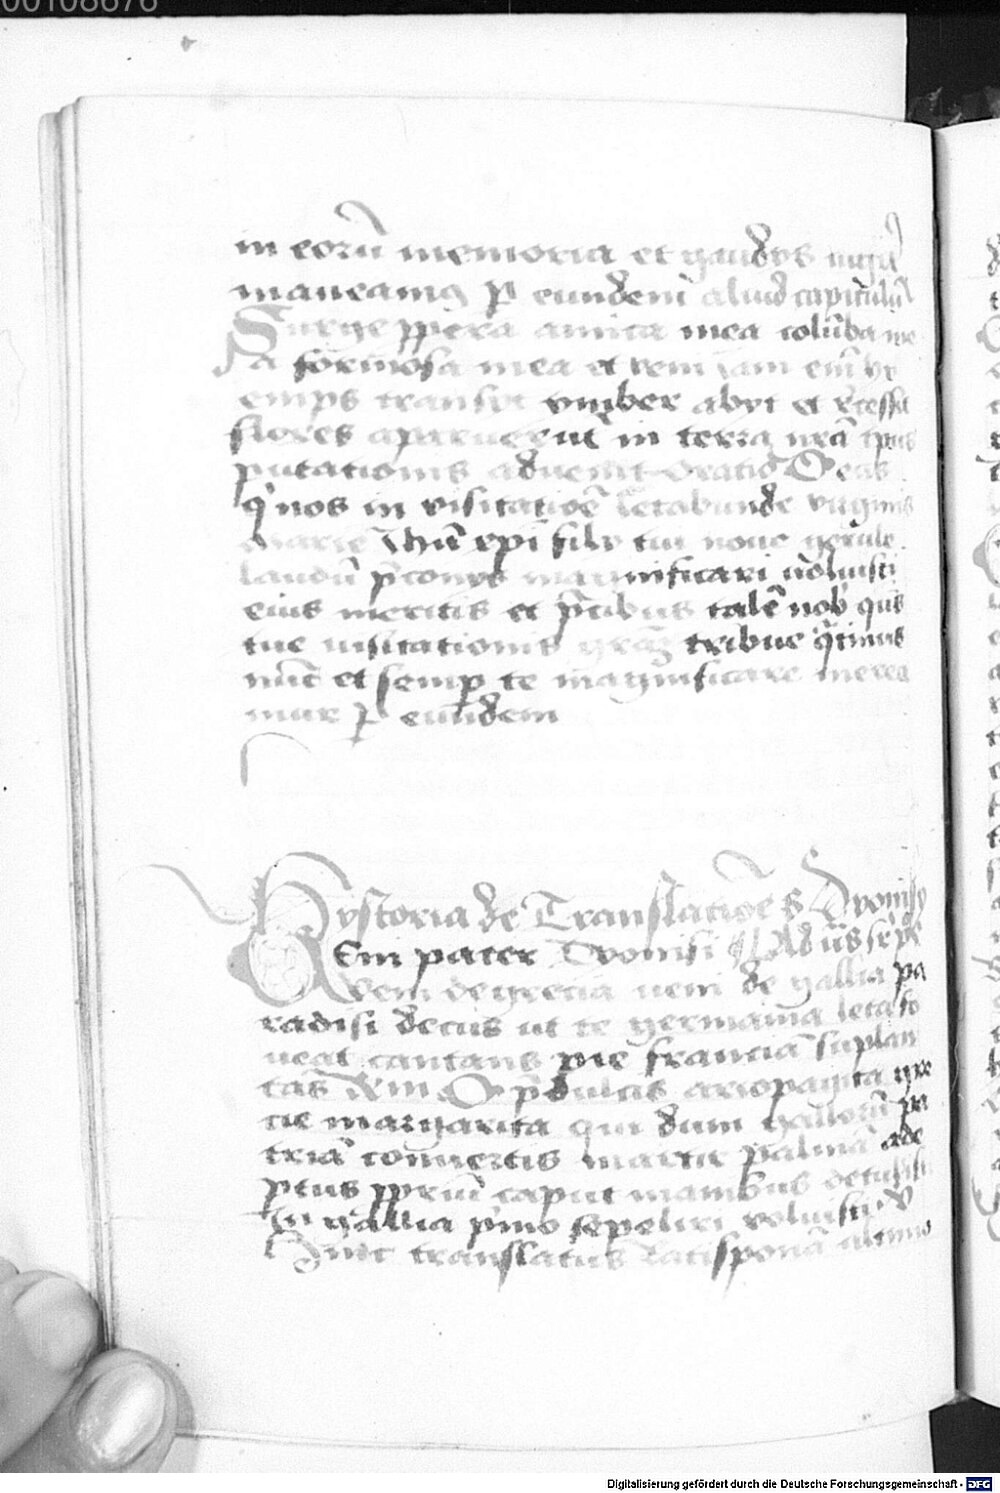 00108676
in eorū memoria et gaudys iugit̄
maneamꝰ p eundem aliud capitulū
Surge ppera amica mea colūba me
a formosa mea et veni iam em̄ hy
emps transyt ymber abyt et recessit
flores aparuerūt in terra nrā tp̄us
putationis advenit Oratio Deus
q nos in visitatiōe letabunde virginis
marie Ihū xpi fily tui nove gerule
laudū pconys magnificari voluisti
eius meritis et p̄cibus talē nob̄ quis
tue visitationis grām tribue q̄tinus
nūc et semp te magnificare merea
mur p eundem
Hystoria de Translatiōe s Dyonisy
Gem pater Dyonisi Ad iis sepe
Avem de grecia veni de gallia pa
radisi decus ut te germania leta fo
veat cantans pie francia suplan
tas XIII O p̄dulcis ariopagita gre
cie margarita qui dum gallorū pa
triā convertis martir palmā ade
ptus ppriū caput manibus detulisti
In gallia p̄mo sepeliri voluisti v̄
Hinc translatus Ratisponā
Digitalisierung gefördert durch die Deutsche Forschungsgemeinschaft - DFG